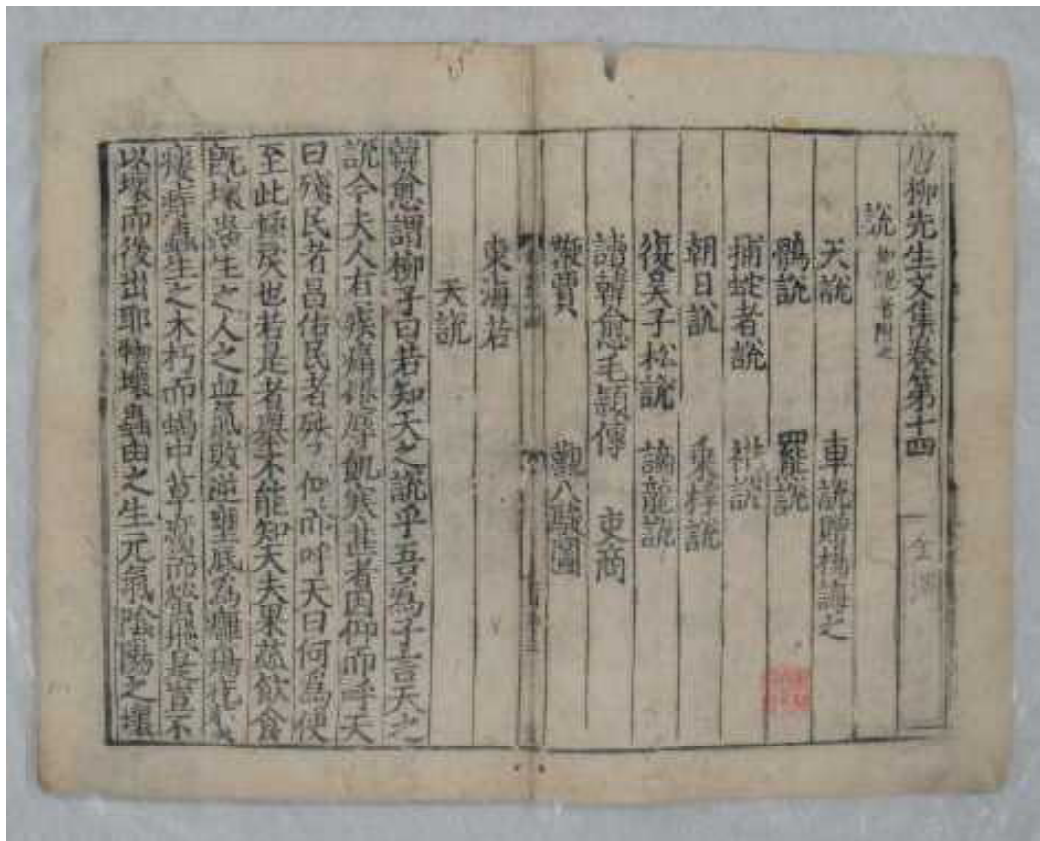 柳先生文集卷第十四
說
天說 車說贈楊誨之
鶻說 羆說
捕蛇者說 䄍說
朝日說 乘桴說
復吳子松說 謫龍說
讀韓愈毛穎傳 吏商
鞭賈 觀八駿圖
東海若
天說
韓愈謂柳子曰若知天之說乎吾爲子言天之
說今夫人有疾痛倦辱飢寒甚者因仰而呼天
曰殘民者昌佑民者殃又仰而呼天曰何爲使
至此極戾也若是者舉不能知天夫果蓏飮食
旣壞蟲生之人之血氣敗逆壅底爲癰瘍疣
瘻痔蟲生之木朽而蝎中草腐而螢飛是豈不
以壞而後出耶物壞蟲由之生元氣陰陽之壞